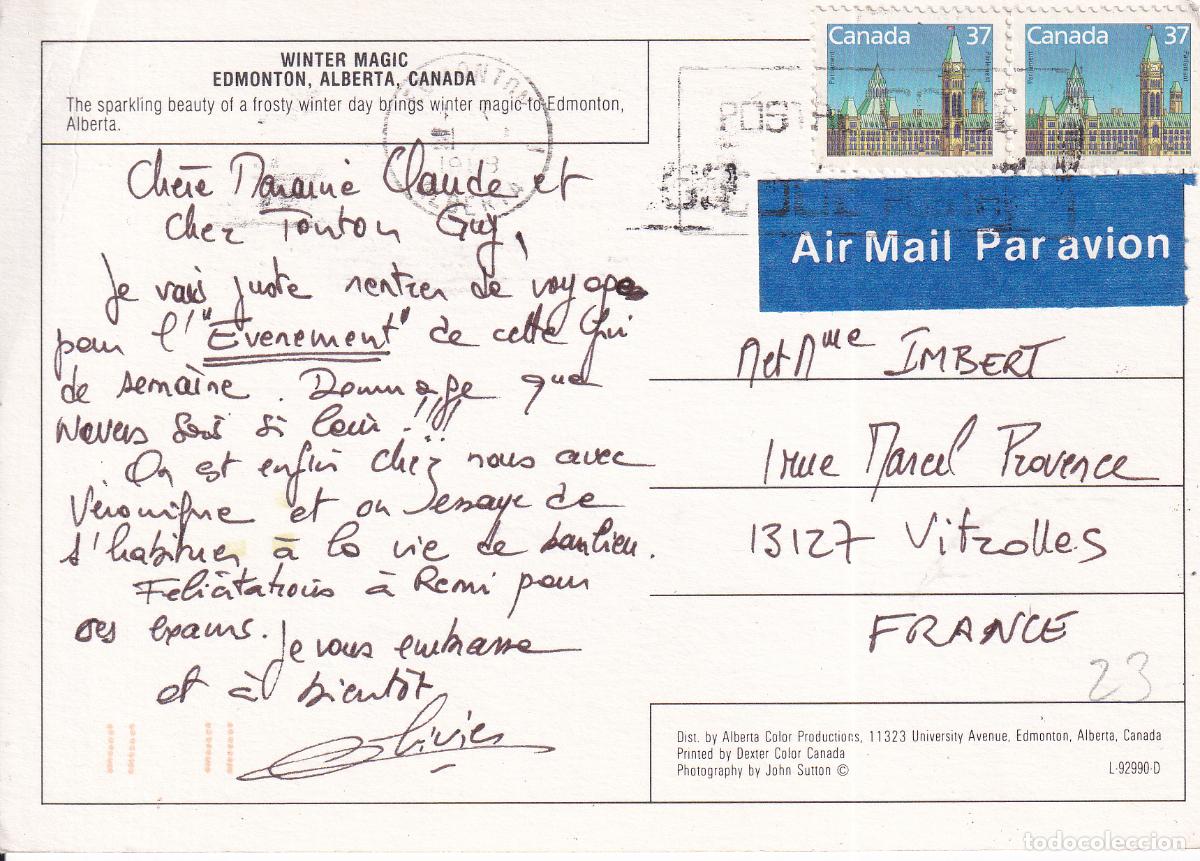 WINTER MAGIC
EDMONTON, ALBERTA, CANADA
The sparkling beauty of a frosty winter day brings winter magic to Edmonton,
Alberta.
Canada 37
Canada 37
Air Mail Par avion
Chère Maraine Claude et
cher Tonton Guy,
Je vais juste rentrer de voyage
pour l'"Evenement" de cette fin
de semaine. Dommage que
Nevers soit si loin!!!!
On est enfin chez nous avec
Véronique et on essaye de
s'habituer à la vie de banlieu.
Felicitations à Remi pour
ses exams. Je vous embrasse
et à bientôt
Olivier
M et Mme IMBERT
1 rue Marcel Provence
13127 Vitrolles
FRANCE
23
Dist. by Alberta Color Productions, 11323 University Avenue, Edmonton, Alberta, Canada
Printed by Dexter Color Canada
Photography by John Sutton ©
L-92990-D
todocoleccion